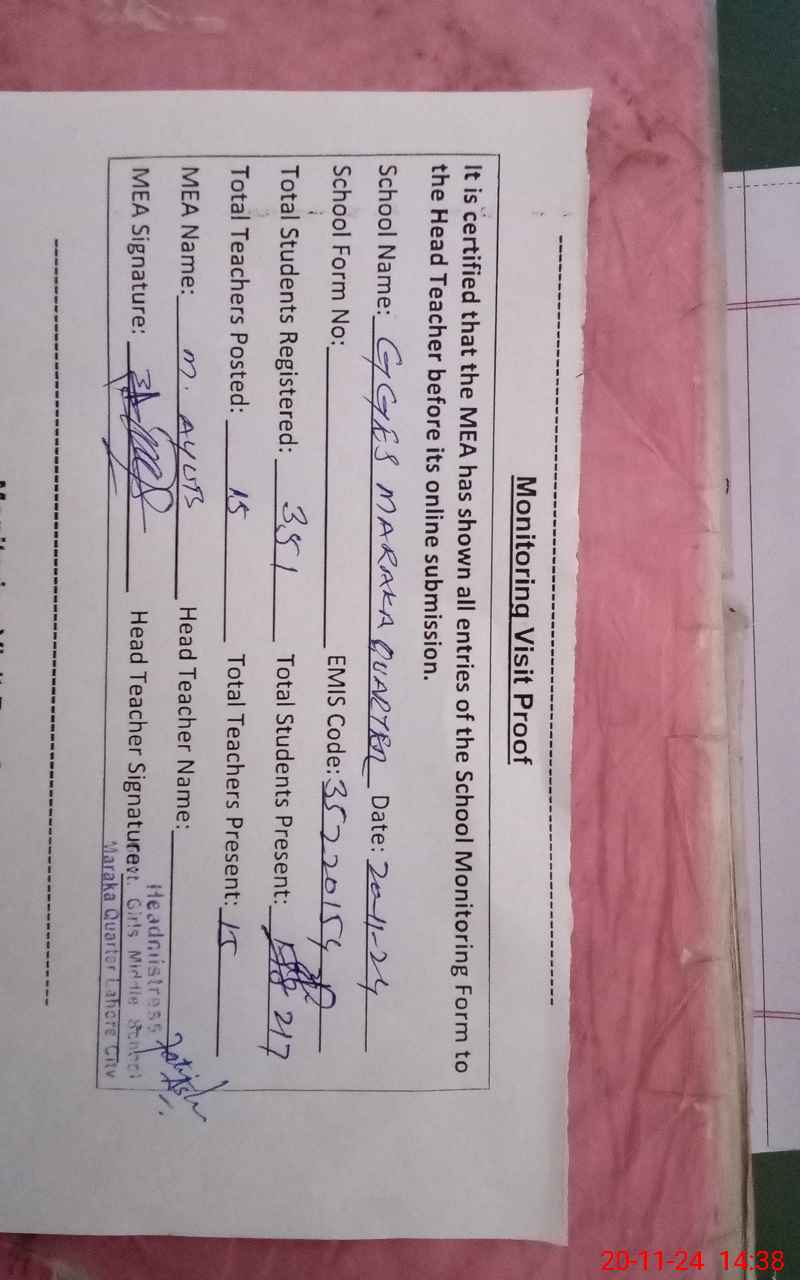 Monitoring Visit Proof
It is certified that the MEA has shown all entries of the School Monitoring Form to
the Head Teacher before its online submission.
School Name: GGES MARAKA QUARTER Date: 20-11-24
School Form No: EMIS Code: 35220154
Total Students Registered: 351 Total Students Present: 217
Total Teachers Posted: 15 Total Teachers Present: 15
MEA Name: M. AYUB Head Teacher Name:
MEA Signature: Head Teacher Signature
Headmistress
vt. Girls Middle School
Maraka Quarter Lahore City
20-11-24 14:38